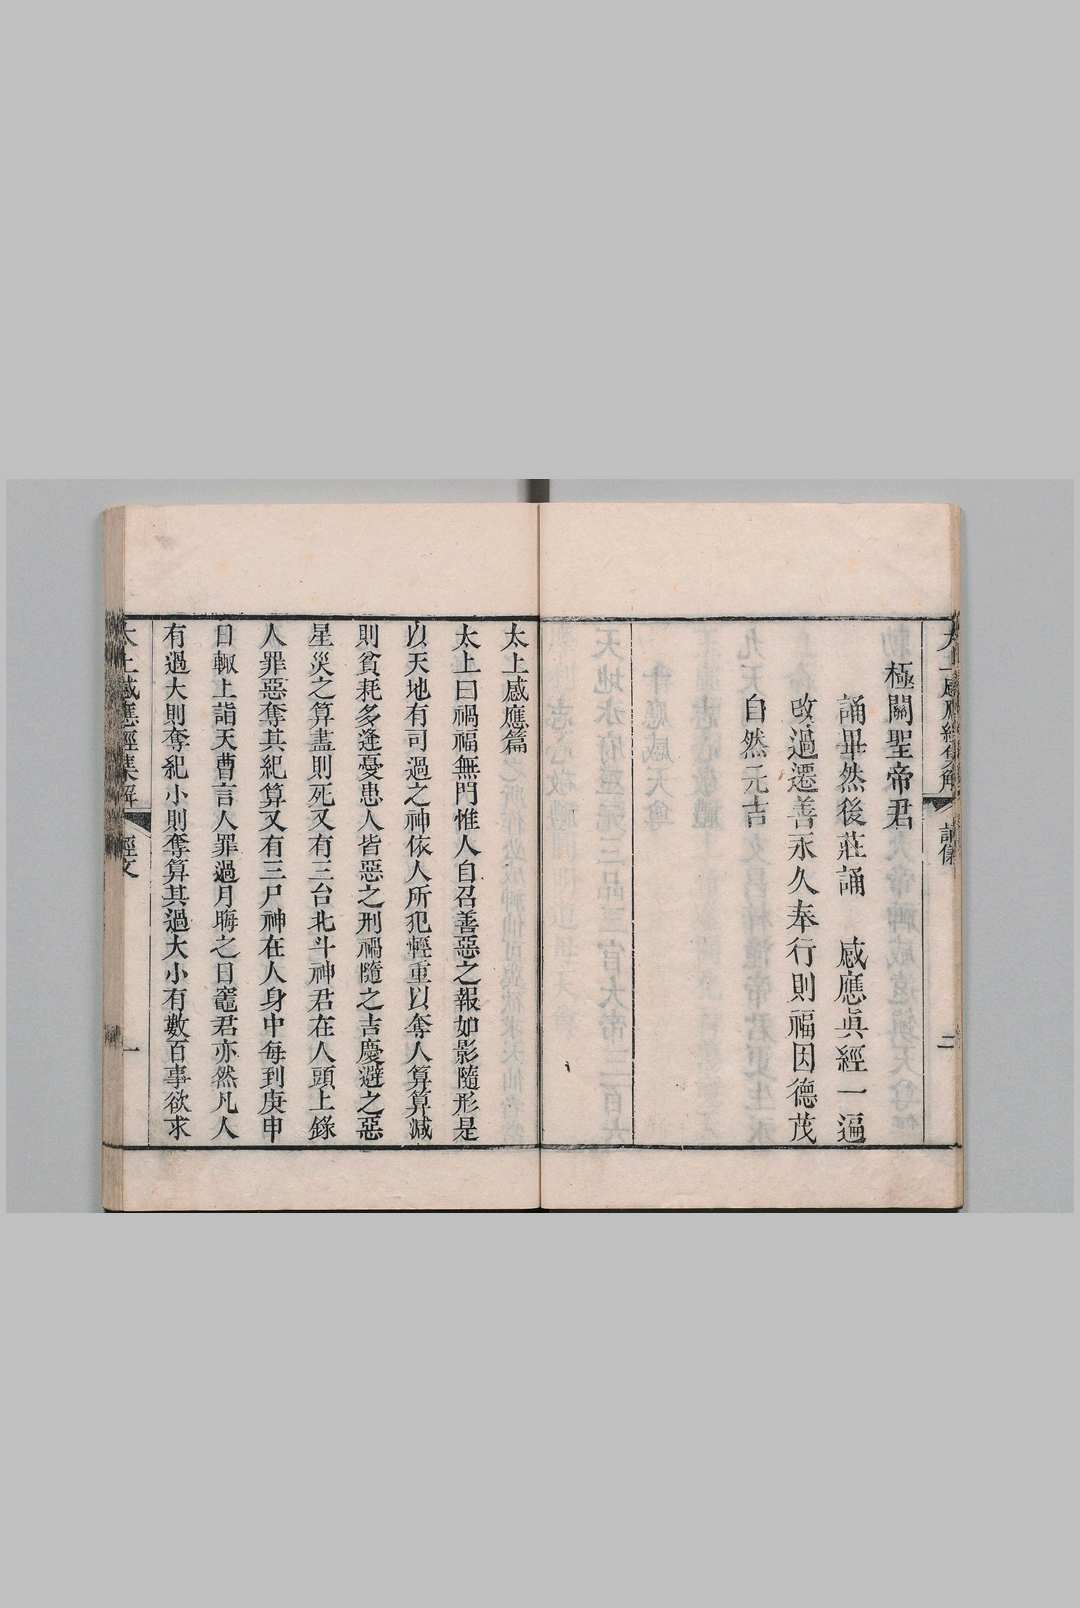 極關聖帝君
誦畢然後莊誦　感應眞經一遍
改過遷善永久奉行則福因德茂
自然元吉
太上感應篇
太上曰禍福無門惟人自召善惡之報如影隨形是
以天地有司過之神依人所犯輕重以奪人算算減
則貧耗多逢憂患人皆惡之刑禍隨之吉慶避之惡
星災之算盡則死又有三台北斗神君在人頭上錄
人罪惡奪其紀算又有三尸神在人身中每到庚申
日輒上詣天曹言人罪過月晦之日竈君亦然凡人
有過大則奪紀小則奪算其過大小有數百事欲求
太上感應經集解　經文　一